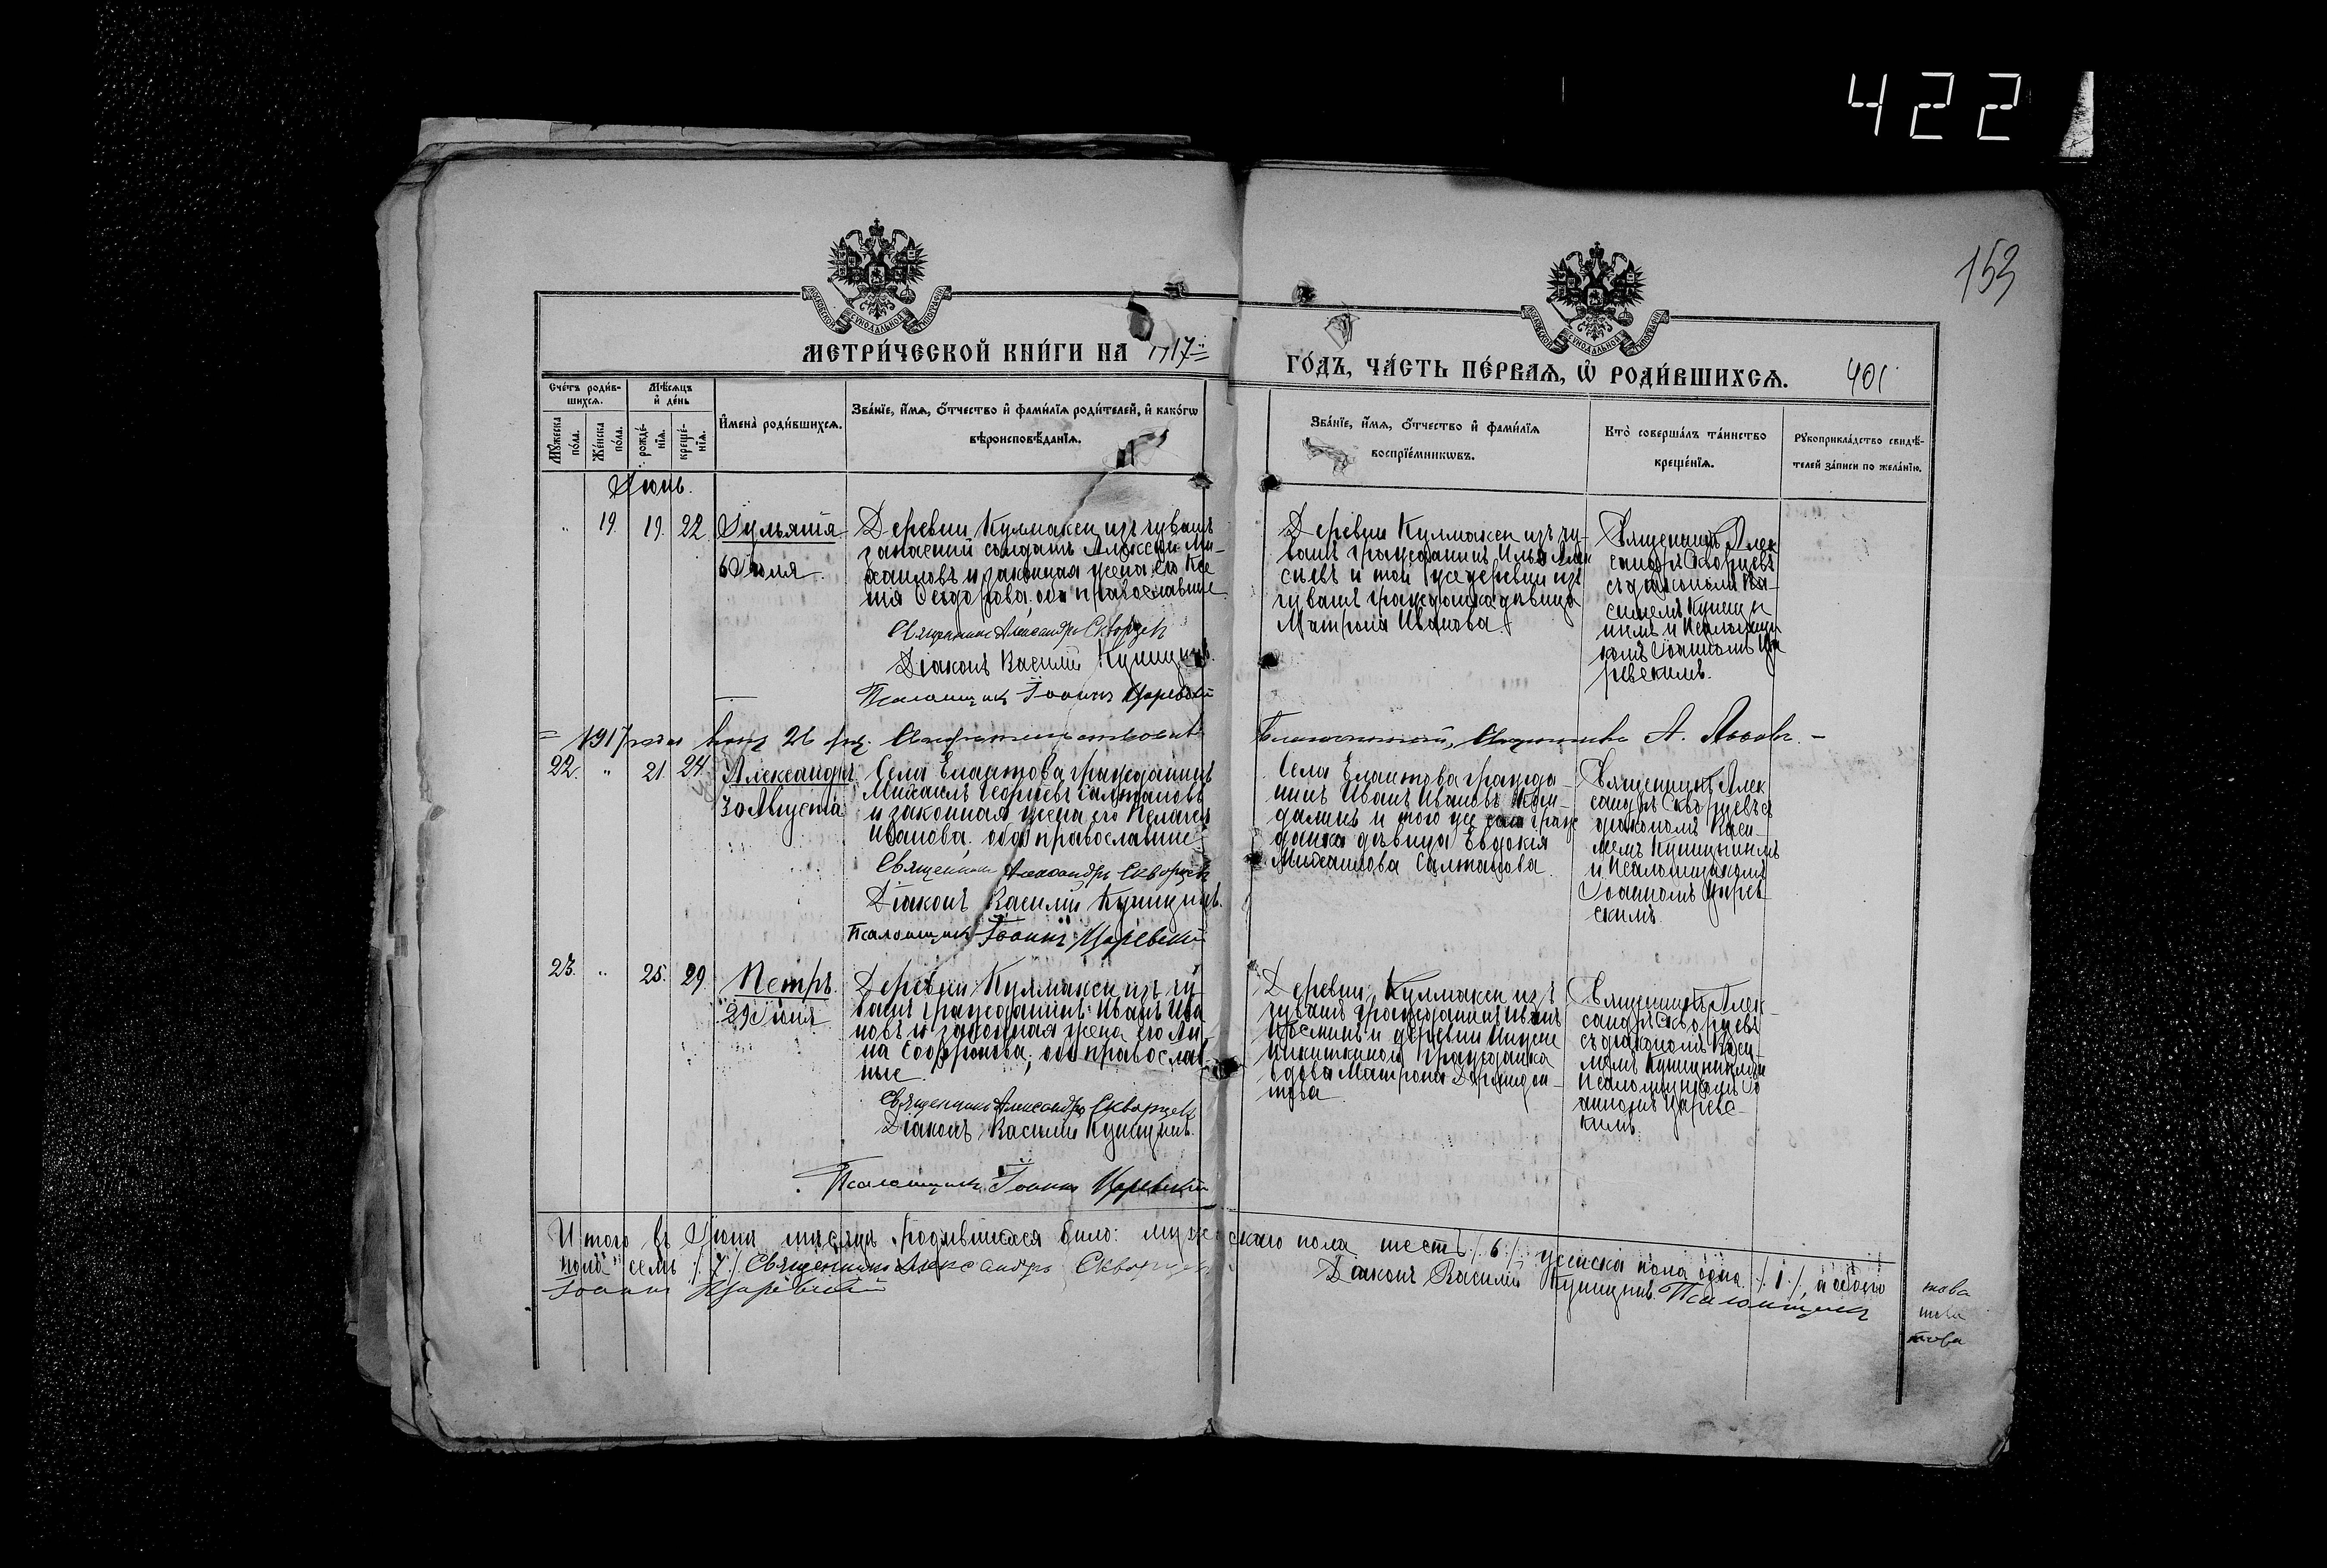 422
153
МЕТРИ́ЧЕСКОЙ КНИ́ГИ НА 1917 ГО́ДЪ, ЧА́СТЬ ПЕ́РВАѦ, Ѡ҆ РОДИ́ВШИХСѦ.
401
Сче́тъ роди́в-
шихсѧ.
Мѣ́сѧцъ
и҆ де́нь
Мꙋ́жеска
по́ла.
Же́нска
по́ла.
рожде́-
нїѧ.
креще́-
нїѧ.
И҆мена̀ роди́вшихсѧ.
Зва́нїе, и҆́мѧ, ѻ҆́тчество и҆ фами́лїѧ роди́телей, и҆ како́гѡ
вѣроисповѣ́данїѧ.
Зва́нїе, и҆́мѧ, ѻ҆́тчество и҆ фами́лїѧ
воспрїе́мникѡвъ.
Кто̀ соверша́лъ та́инство
креще́нїѧ.
Рꙋкоприкла́дство свидѣ́-
телей за́писи по жела́нїю.
Іюнь.
„ 19 19. 22. Іульянія
6 Іюля
Деревни Кулмаксы изъ чувашъ
запасный солдатъ Алексѣй Ми-
хаиловъ и законная жена его Ксе
нія Ѳеодорова, оба православные
Священникъ Александръ Скворцевъ
Діаконъ Василій Куницынъ.
Псаломщикъ Іоаннъ Царевскій
Деревни Кулмаксы изъ чу-
вашъ гражданинъ Илья Алек
сѣевъ и той же деревни изъ
чувашъ гражданка дѣвица
Матрона Иванова.
Священникъ Алек
сандръ Скворцевъ
съ діакономъ Ва-
силіемъ Куницы
нымъ и Псаломщи
комъ Іоанномъ Ца
ревскимъ.
1917 года 26 Свидѣтельствовалъ Благочинный, Священникъ А.
22. „ 21. 24. Александръ.
30 Августа
Села Елаитова гражданинъ
Михаилъ Георгіевъ Салтановъ
и законная жена его Пелагея
Иванова, оба православные
Священникъ Александръ Скворцевъ
Діаконъ Василій Куницынъ.
Псаломщикъ Іоаннъ Царевскій
Села Елаитова гражда
нинъ Иванъ Ивановъ
и того же села граж
данка дѣвица Евдокія
Михаилова Салтанова.
Священникъ Алек
сандръ Скворцевъ съ
діакономъ Васи-
ліемъ Куницынымъ
и Псаломщикомъ
Іоанномъ Царев-
скимъ.
23. „ 25. 29. Петръ.
29 Іюня
Деревни Кулмаксы изъ чу-
вашъ гражданинъ Иванъ Ива
новъ и законная жена его Ан
на Софронова, оба православ
ные.
Священникъ Александръ Скворцевъ
Діаконъ Василій Куницынъ.
Псаломщикъ Іоаннъ Царевскій
Деревни Кулмаксы изъ
чувашъ гражданинъ Иванъ
и деревни
гражданка
вдова Матрона
Священникъ Алек-
сандръ Скворцевъ
съ діакономъ Васи-
ліемъ Куницынымъ и
Псаломщикомъ Іо
анномъ Царевс-
кимъ.
Итого въ Іюнѣ мѣсяцѣ родившихся было: мужскаго пола шесть /. 6 ./, женска пола одна /. 1 ./, а обоего
пола семь /. 7 ./. Священникъ Александръ Скворцевъ Діаконъ Василій Куницынъ. Псаломщикъ
Іоаннъ Царевскій
това
това